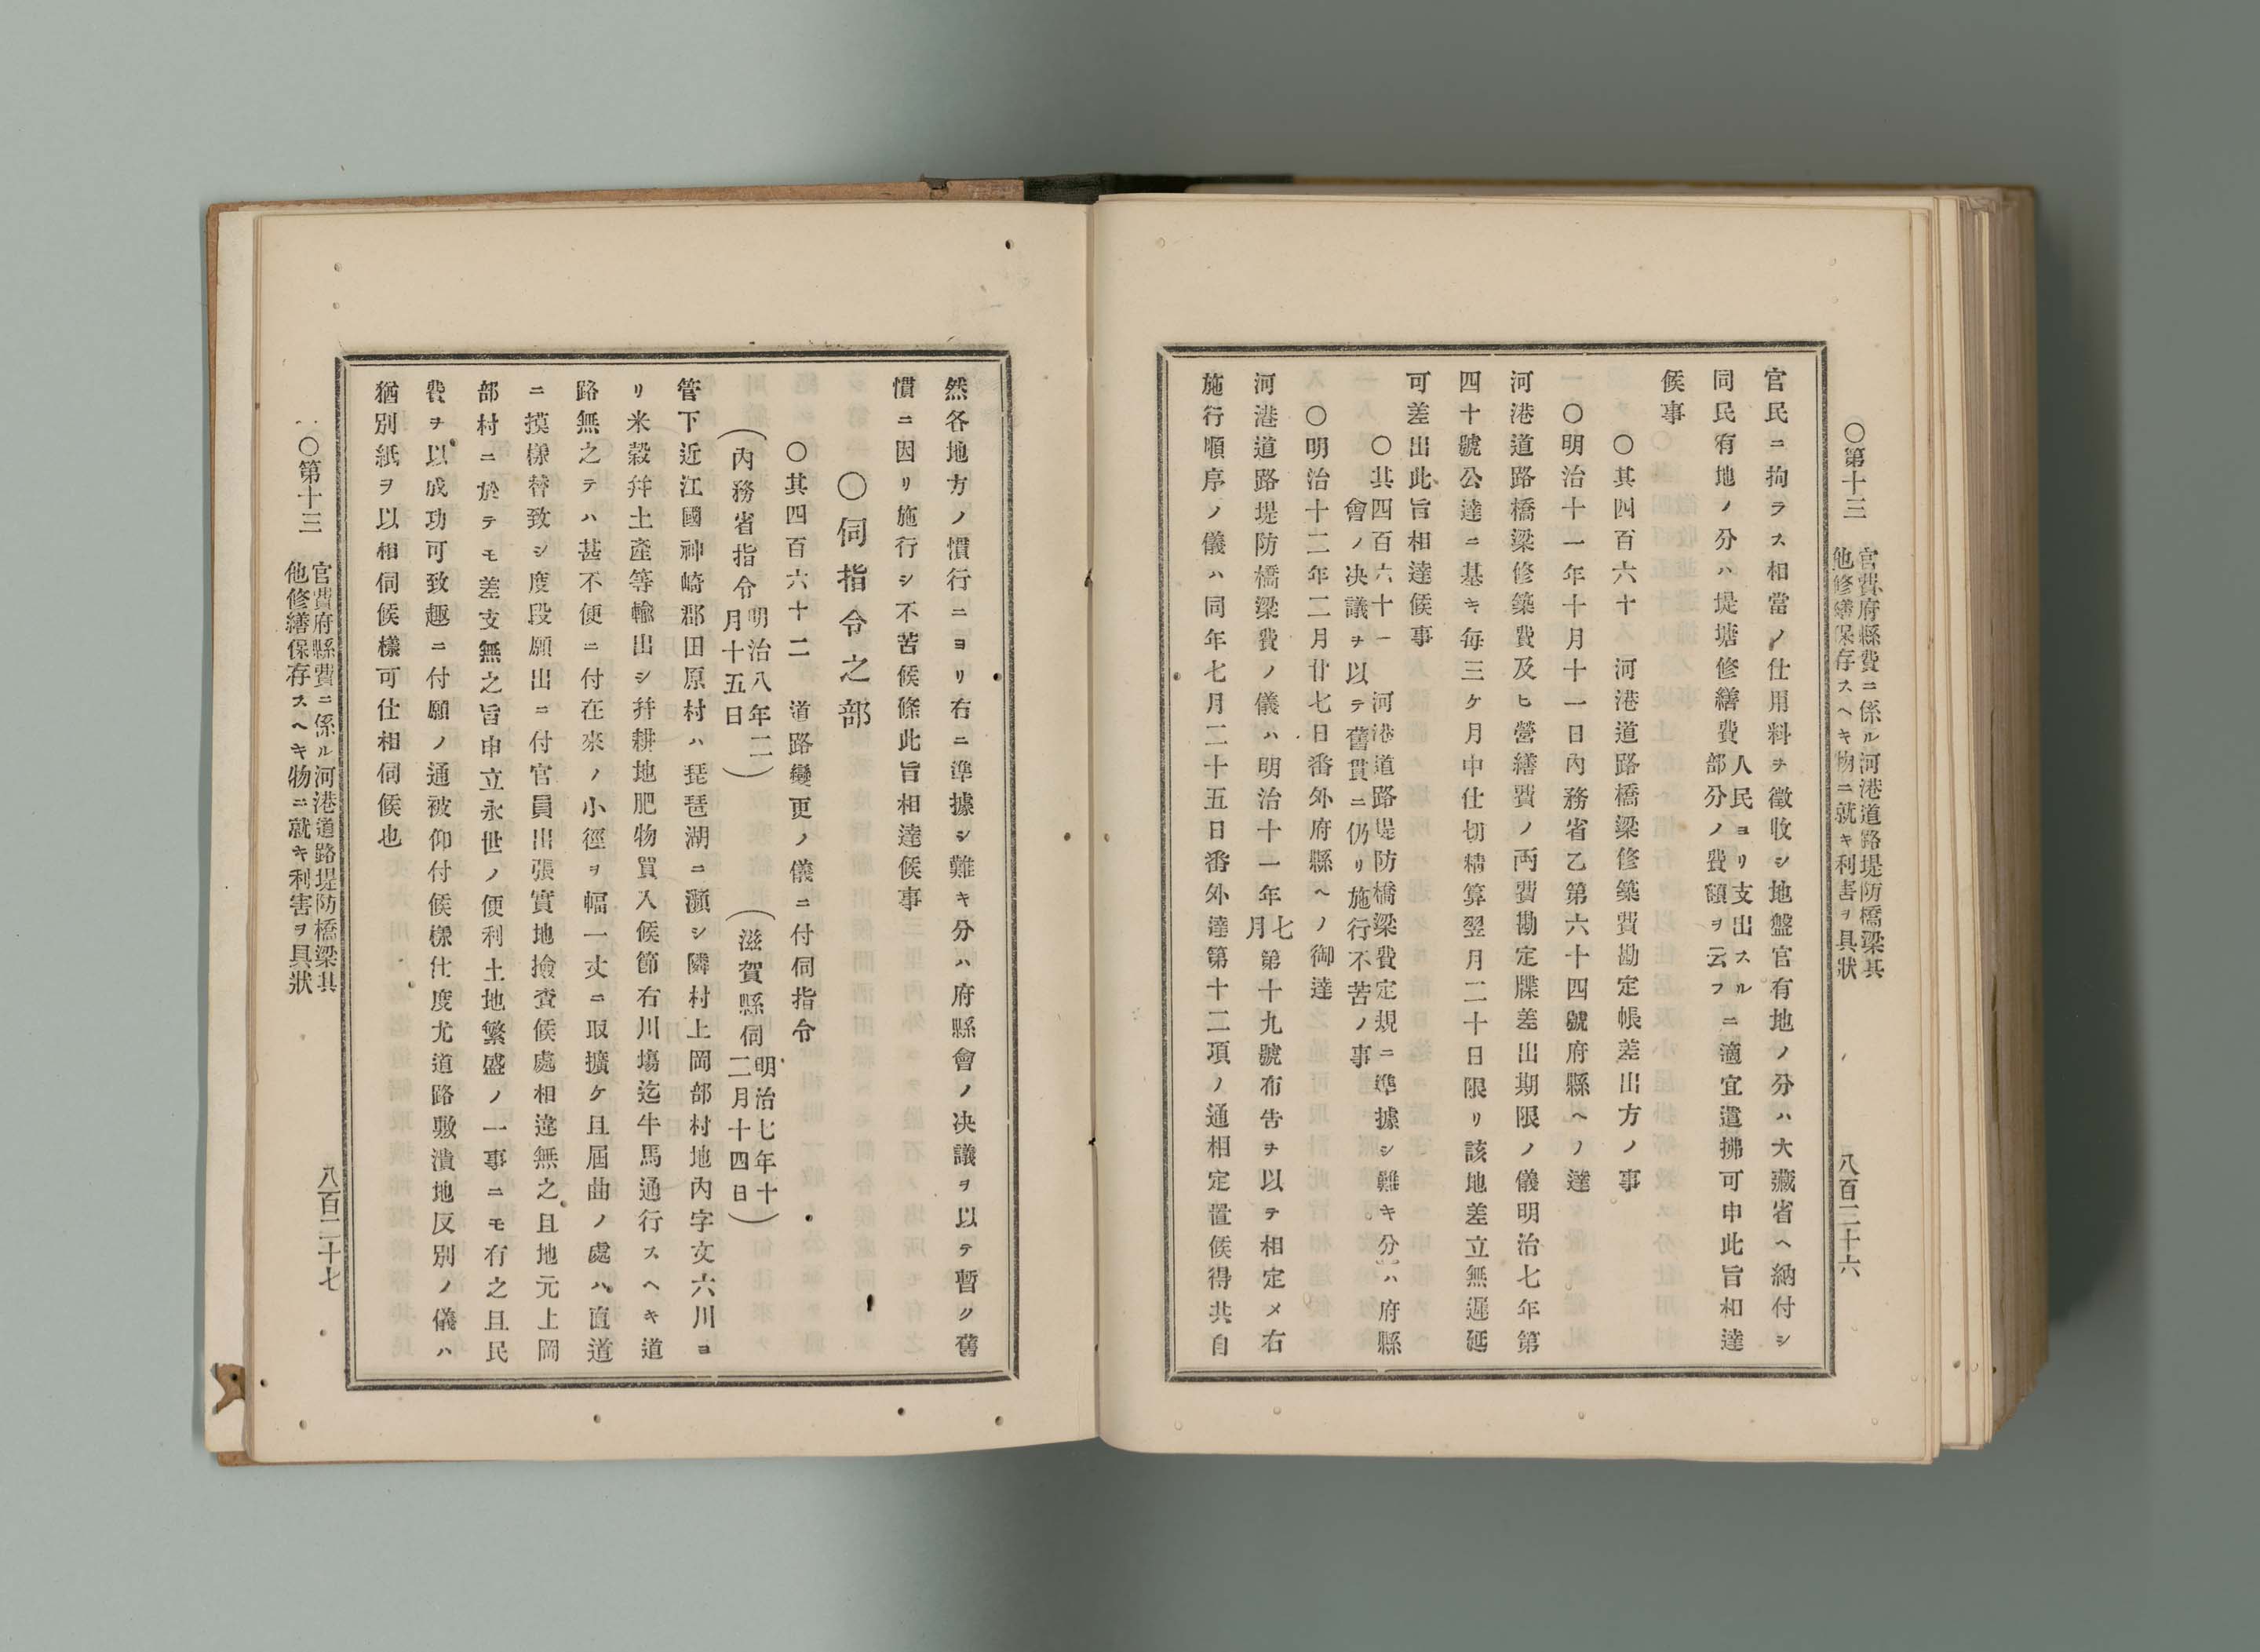 〇第十三 官費府縣費ニ係ル河港道路堤防橋梁其
他修繕保存スヘキ物ニ就キ利害ヲ具狀
八百二十六
官民ニ拘ラス相當ノ仕用料ヲ徵收シ地盤官有地ノ分ハ大藏省ヘ納付シ
同民有地ノ分ハ堤塘修繕費人民ヨリ支出スル部分ノ費額ヲ云フニ適宜遣拂可申此旨相達
候事
〇其四百六十 河港道路橋梁修築費勘定帳差出方ノ事
〇明治十一年十月十一日內務省乙第六十四號府縣ヘノ達
河港道路橋梁修築費及ヒ營繕費ノ兩費勘定牒差出期限ノ儀明治七年第
四十號公達ニ基キ每三ケ月中仕切精算翌月二十日限リ該地差立無遲延
可差出此旨相達候事
〇其四百六十一 河港道路堤防橋梁費定規ニ準據シ難キ分ハ府縣
會ノ决議ヲ以テ舊貫ニ仍リ施行不苦ノ事
〇明治十二年二月廿七日番外府縣ヘノ御達
河港道路堤防橋梁費ノ儀ハ明治十一年七月第十九號布告ヲ以テ相定メ右
施行順序ノ儀ハ同年七月二十五日番外達第十二項ノ通相定置候得共自
然各地方ノ慣行ニヨリ右ニ準據シ難キ分ハ府縣會ノ决議ヲ以テ暫ク舊
慣ニ因リ施行シ不苦候條此旨相達候事
〇伺指令之部
〇其四百六十二 道路變更ノ儀ニ付伺指令
（內務省指令明治八年二月十五日） （滋賀縣伺明治七年十二月十四日）
管下近江國神崎郡田原村ハ琵琶湖ニ瀕シ隣村上岡部村地內字文六川ヨ
リ米穀幷土產等輸出シ幷耕地肥物買入候節右川塲迄牛馬通行スヘキ道
路無之テハ甚不便ニ付在來ノ小徑ヲ幅一丈ニ取擴ケ且屈曲ノ處ハ直道
ニ摸樣替致シ度段願出ニ付官員出張實地撿査候處相違無之且地元上岡
部村ニ於テモ差支無之旨申立永世ノ便利土地繁盛ノ一事ニモ有之且民
費ヲ以成功可致趣ニ付願ノ通被仰付候樣仕度尤道路敷潰地反別ノ儀ハ
猶別紙ヲ以相伺候樣可仕相伺候也
〇第十三 官費府縣費ニ係ル河港道路堤防橋梁其
他修繕保存スヘキ物ニ就キ利害ヲ具狀
八百二十七